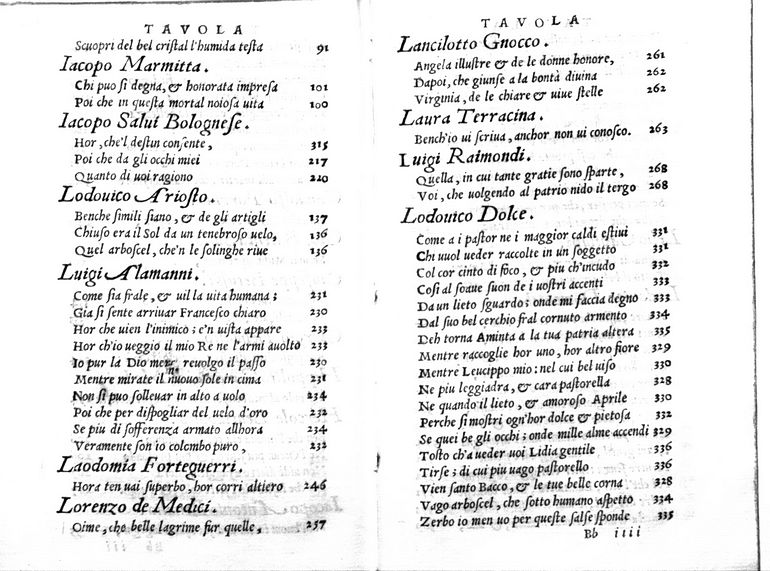 TAVOLA
Scuopri del bel cristal l'humida testa 91
Iacopo Marmitta.
Chi puo sì degna, & honorata impresa 101
Poi che in questa mortal noiosa uita 100
Iacopo Salui Bolognese.
Hor, che'l destin consente, 315
Poi che da gli occhi miei 217
Quanto di uoi ragiono 220
Lodouico Ariosto.
Benche simili siano, & de gli artigli 137
Chiuso era il Sol da un tenebroso uelo, 136
Quel arboscel, che'n le solinghe riue 136
Luigi Alamanni.
Come sia frale, & uil la uita humana; 231
Gia si sente arriuar Francesco chiaro 230
Hor che uien l'inimico; e'n uista appare 233
Hor ch'io ueggio il mio Re ne l'armi auolto 233
Io pur la Dio reuolgo il passo 230
Mentre mirate il nuouo sole in cima 231
Non si puo solleuar in alto a uolo 234
Poi che per dispogliar del uelo d'oro 232
Se piu di sofferenza armato allhora 234
Veramente son io colombo puro, 232
Laodomia Forteguerri.
Hora ten uai superbo, hor corri altiero 246
Lorenzo de Medici.
Oime, che belle lagrime fur quelle, 257
TAVOLA
Lancilotto Gnocco.
Angela illustre & de le donne honore, 261
Dapoi, che giunse a la bontà diuina 262
Virginia, de le chiare & uiue stelle 262
Laura Terracina.
Bench'io ui scriua, anchor non ui conosco. 263
Luigi Raimondi.
Quella, in cui tante gratie sono sparte, 268
Voi, che uolgendo al patrio nido il tergo 268
Lodouico Dolce.
Come a i pastor ne i maggior caldi estiui 331
Chi uuol ueder raccolte in un soggetto 331
Col cor cinto di foco, & piu ch'incudo 332
Cosi al soaue suon de i uostri accenti 333
Da un lieto sguardo; onde mi faccia degno 333
Dal suo bel cerchio fral cornuto armento 334
Deh torna Aminta a la tua patria altera 335
Mentre raccoglie hor uno, hor altro fiore 329
Mentre Leucippo mio: nel cui bel uiso 330
Ne piu leggiadra, & cara pastorella 328
Ne quando il lieto, & amoroso Aprile 330
Perche si mostri ogn'hor dolce & pietosa 332
Se quei be gli occhi; onde mille alme accendi 329
Tosto ch'a ueder uoi Lidia gentile 336
Tirse; di cui piu uago pastorello 336
Vien santo Bacco, & le tue belle corna 328
Vago arboscel, che sotto humano aspetto 334
Zerbo io men uo per queste salse sponde 335
Bb iiii